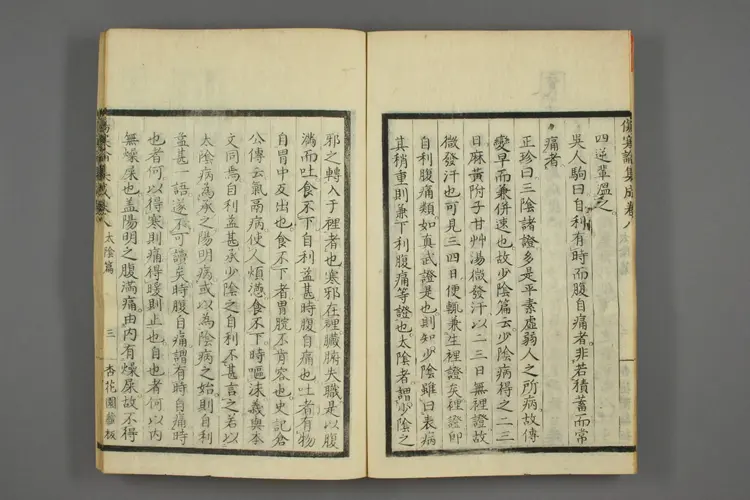 傷寒論集成卷八 太陰篇
四逆輩溫之
吳人駒曰自利有時而腹自痛者非若積蓄而常
痛者
正珍曰三陰諸證多是平素虛弱人之所病故傳
變早而兼併速也故少陰篇云少陰病得之二三
日麻黃附子甘艸湯微發汗以二三日無裡證故
微發汗也可見三四日便輒兼生裡證矣裡證卽
自利腹痛類如真武證是也則知少陰雖曰表病
其稍重則兼下利腹痛等證也太陰者謂少陰之
邪之轉入于裡者也寒邪在裡臟腑失職是以腹
滿而吐食不下自利益甚時腹自痛也吐者有物
自胃中反出也食不下者胃脘不肯容也史記倉
公傳云氣鬲病使人煩懣食不下時嘔沫義與本
文同焉自利益甚承少陰之自利不甚言之若以
太陰病為承之陽明病或以為陰病之始則自利
益甚一語遂不可讀矣時腹自痛謂有時自痛時
也者何以得寒則痛得暖則止也自也者何以內
無燥屎也蓋陽明之腹滿痛由內有燥屎故不得
太陰篇 三 杏花園藏板